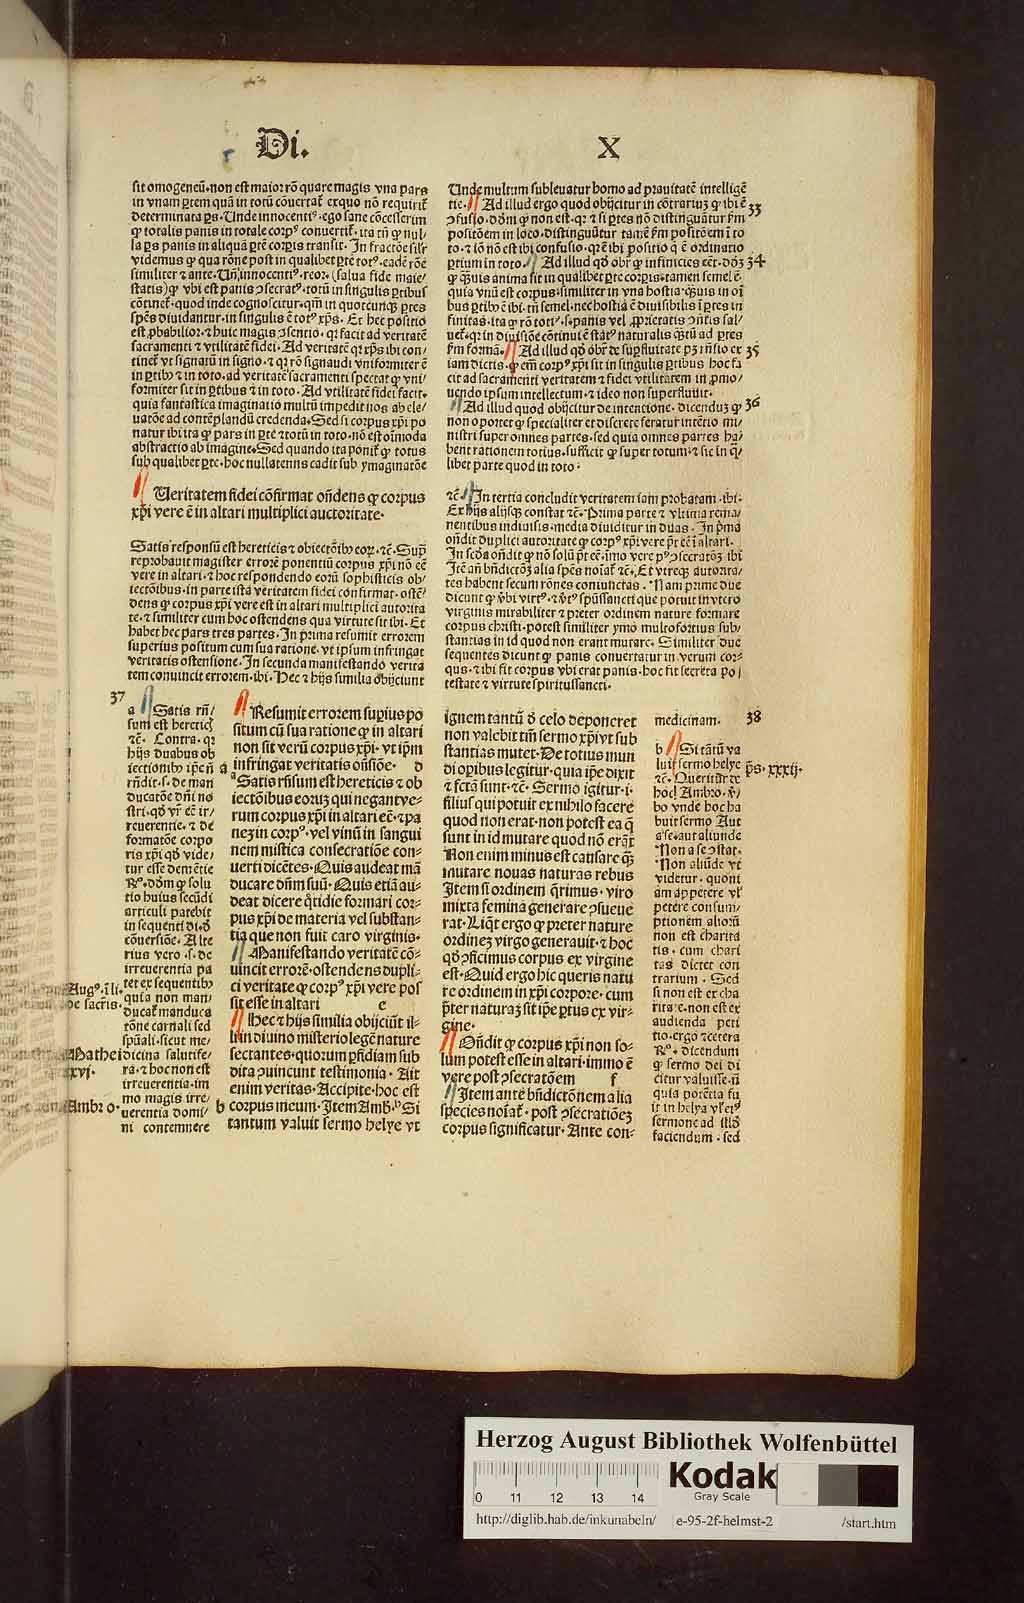 Di. X
sit omogeneū·non est maior rō quare magis vna pars
in vnam ꝑtem quā in totū cōuertat᷑ exquo nō requirit᷑
determinata ꝑs·Unde innocentiꝰ·ego sane cōcesserim
ꝙ totalis panis in totale corpꝰ conuertit᷑·ita tn̄ ꝙ nul-
la ꝑs panis in aliquā ꝑtē corꝑis transit·In fractōe sil'r
videmus ꝙ qua rōne post in qualibet ꝑte totꝰ·eadē rōne
similiter ⁊ ante·Un̄ innocentiꝰ·reor·(salua fide maie-
statis)ꝙ vbi est panis ↄsecratꝰ·totū in singulis ꝑtibus
cōtinet᷑·quod inde cognoscitur·qm̄ in quotcunqꝫ ꝑtes
spēs diuidantur·in singulis ē totꝰ xp̄s· Et hec positio
est ꝓbabilior·⁊ huic magis ↄsentio·qꝛ facit ad veritatē
sacramenti ⁊ vtilitatē fidei·Ad veritatē qꝛ xp̄s ibi con-
tinet᷑ vt signatū in signo·⁊ qꝛ rō signandi vniformiter ē
in ꝑtibꝰ ⁊ in toto·ad veritatē sacramenti spectat ꝙ vni-
formiter sit in ꝑtibus ⁊ in toto·Ad vtilitatē fidei facit·
quia fantastica imaginatio multū impedit nos ab ele-
uatōe ad contēplandū credenda·Sed si corpus xp̄i po
natur ibi ita ꝙ pars in ꝑte ⁊ totū in toto·nō est oīmoda
abstractio ab imagine·Sed quando ita ponit᷑ ꝙ totus
sub qualibet ꝑte·hoc nullatenus cadit sub ymaginatōe
Ueritatem fidei cōfirmat on̄dens ꝙ corpus
xp̄i vere ē in altari multiplici auctoritate·
Satis responsū est hereticis ⁊ obiectōibꝰ eoꝝ·⁊c̄·Sup̄
reprobauit magister errorē ponentiū corpus xp̄i nō eē
vere in altari·⁊ hoc respondendo eorū sophisticis ob-
iectōibus·in parte ista veritatem fidei confirmat·ostē-
dens ꝙ corpus xp̄i vere est in altari multiplici autorita
te·⁊ similiter cum hoc ostendens qua virtute sit ibi·Et
habet hec pars tres partes·In prima resumit errorem
superius positum cum sua ratione·vt ipsum infringat
veritatis ostensione·In secunda manifestando verita
tem conuincit errorem·ibi·Hec ⁊ hijs similia obijciunt
Unde multum subleuatur homo ad prauitatē intelligē
tie· Ad illud ergo quod obijcitur in cōtrariuꝫ ꝙ ibi ē 33
ↄfusio·dōm ꝙ non est·qꝛ ⁊ si ꝑtes nō distinguātur s̄m
positōem in loco·distinguūtur tamē s̄m positōem ī to
to·⁊ iō nō est ibi confusio·qꝛ ē ibi positio q̄ ē ordinatio
ꝑtium in toto· Ad illud qd̓ obr̄ ꝙ infinicies eēt·dōꝫ 34
ꝙ qᷓuis anima sit in qualibet ꝑte corꝑis·tamen semel ē·
quia vnū est corpus·similiter in vna hostia·qᷓuis in oī
bus ꝑtibꝰ ē ibi·tn̄ semel·nec hostia ē diuisibilis ī ꝑtes in
finitas·ita ꝙ rō totiꝰ·s·panis vel ꝓprietatis ↄn̄tis sal-
uet᷑·qꝛ in diuisiōe cōtinui ē statꝰ naturalis qᷓtū ad ꝑtes
s̄m formā· Ad illud qd̓ obr̄ de suꝑfluitate pꝫ rn̄sio ex 35
iam dictis·ꝙ em̄ corpꝰ xp̄i sit in singulis ꝑtibus hoc fa
cit ad sacramenti veritatem ⁊ fidei vtilitatem in ꝓmo-
uendo ipsum intellectum·⁊ ideo non superfluit·
Ad illud quod obijcitur de intentione·dicenduꝫ ꝙ 36
non oportet ꝙ specialiter et discrete feratur intētio mi-
nistri super omnes partes·sed quia omnes partes ha-
bent rationem totius·sufficit ꝙ super totum·⁊ sic in q̄-
libet parte quod in toto·
⁊c̄· In tertia concludit veritatem iam probatam·ibi·
Ex hijs alijsqꝫ constat ⁊c̄·Prima parte ⁊ vltima rema-
nentibus indiuisis·media diuiditur in duas·In p̄ma
on̄dit duplici autoritate ꝙ corpꝰ xp̄i vere p̄t eē ī altari·
In scd̓a on̄dit ꝙ nō solū p̄t eē·īmo vere pꝰ ↄsecratōeꝫ ibi
Itē an̄ bn̄dictōeꝫ alia spēs noīat᷑ ⁊c̄·Et vtreqꝫ autorita-
tes habent secum rōnes coniunctas·Nam prime due
dicunt ꝙ v̓bi virtꝰ·⁊ v̓tꝰ spūssancti que potuit in vtero
virginis mirabiliter ⁊ preter ordinem nature formare
corpus christi·potest similiter ymo multofortius sub-
stantias in id quod non erant mutare·Similiter due
sequentes dicunt ꝙ panis conuertatur in verum cor-
qus·⁊ ibi fit corpus vbi erat panis·hoc fit secreta po-
testate ⁊ virtute spiritussancti·
37
a Satis rn̄-
sum est hereticꝭ
⁊c̄· Contra·qꝛ
hijs duabus ob
iectionibꝰ ip̄e n̄
rn̄dit·s·de man
ducatōe dn̄i no
stri·qd̓ vr̄ eē ir-
reuerentie·⁊ de
formatōe corpo
ris xp̄i qd̓ vide-
tur esse demētie
Rꝰ·dōm ꝙ solu
tio huius secūdi
articuli patebit
in sequenti di·d̓
cōuersiōe·Alte
rius vero·s·de
irreuerentia pa
tet ex sequentibꝰ
quia non man-
ducat᷑ manduca
tōne carnali sed
spūali·sicut me-
dicina salutife-
ra·⁊ hoc non est
irreuerentia·im
mo magis irre-
uerentia domi-
ni contemnere
Augꝰ·ī li·
de sacr̄is·
Mathei
xxvj·
Ambro·
Resumit errorem suꝑius po
situm cū sua ratione ꝙ in altari
non sit verū corpus xp̄i·vt ip̄m
infringat veritatis on̄siōe· d
a Satis rn̄sum est hereticis ⁊ ob
iectōibus eoruꝫ qui negant ve-
rum corpus xp̄i in altari eē·⁊ pa
neꝫ in corpꝰ·vel vinū in sangui
nem mistica consecratiōe con-
uerti dicētes·Quis audeat mā
ducare dn̄m suū·Quis etiā au-
deat dicere q̄tidie formari cor-
pus xp̄i de materia vel substan-
tia que non fuit caro virginis·
Manifestando veritatē cō-
uincit errorē·ostendens dupli-
ci veritate ꝙ corpꝰ xp̄i vere pos
sit esse in altari e
Hec ⁊ hijs similia obijciūt il-
li in diuino misterio legē nature
sectantes·quorum ꝑfidiam sub
dita ↄuincunt testimonia·Ait
enim veritas·Accipite·hoc est
b corpus meum·Item Amb̓·Si
tantum valuit sermo helye vt
ignem tantū d̓ celo deponeret
non valebit tm̄ sermo xp̄i vt sub
stantias mutet·De totius mun
di oꝑibus legitur·quia ip̄e dixit
⁊ fctā sunt·⁊c̄·Sermo igitur·i·
filius qui potuit ex nihilo facere
quod non erat·non potest ea q̄
sunt in id mutare quod nō erāt
Non enim minus est causare qᷓꝫ
mutare nouas naturas rebus
Item si ordinem q̄rimus·viro
mixta femina generare ↄsueue
rat·Liqt̄ ergo ꝙ preter nature
ordineꝫ virgo generauit·⁊ hoc
qd̓ ↄficimus corpus ex virgine
est·Quid ergo hic queris natu
re ordinem in xp̄i corpore·cum
p̄ter naturaꝫ sit ip̄e ꝑtus ex vir-
gine·
On̄dit ꝙ corpus xp̄i non so-
lum potest esse in altari·immo ē
vere post ↄsecratōem f
Item ante bn̄dictōnem alia
species noīat᷑·post ↄsecratiōeꝫ
corpus significatur·Ante con-
medicinam· 38
b Si tātū va
luit sermo helye
⁊c̄·Querit᷑ de
hoc Ambro·v̓-
bo vnde hoc ha
buit sermo Aut
a se·aut aliunde
Non a se ↄstat·
Non aliūde vt
videtur·quoni
am appetere vl'
petere consum-
ptionem aliorū
non est charita
tis·cum chari
tas dictet con
trarium·Sed
si non est ex cha
ritate·non est ex
audienda peti
tio·ergo ⁊cetera
Rꝰ·dicendum
ꝙ sermo dei di
citur valuisse·
quia potētia fu
it in helya vl' eiꝰ
sermone ad illd̓
faciendum·sed
p̄s·xxxij·
Herzog August Bibliothek Wolfenbüttel
0 11 12 13 14
Kodak
Gray Scale
http://diglib.hab.de/inkunabeln/ e-95-2f-helmst-2 /start.htm